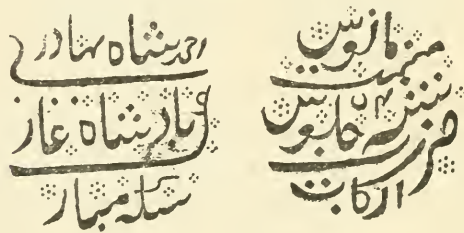 احمد شاه بهادر
بادشاه غازی
سکه مبارک
مانوس
میمنت
سنه ۴ جلوس
ضرب
ارکات